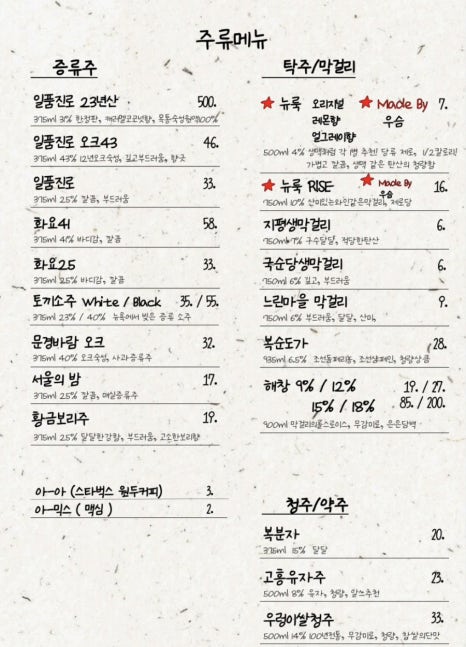 주류메뉴
증류주
일품진로 23년산 500.
375ml
일품진로 오크43 46.
375ml 43% 12년오크숙성, 깊고부드러움, 향긋
일품진로 33.
375ml 25% 깔끔, 부드러움
화요41 58.
375ml 41% 바디감, 깔끔
화요25 33.
375ml 25% 바디감, 깔끔
토끼소주 White / Black 35. / 55.
375ml 23% / 40% 뉴욕에서 빚은 증류 소주
문경바람 오크 32.
375ml 40% 오크숙성, 사과증류주
서울의 밤 17.
375ml 25% 깔끔, 매실증류주
황금보리주 19.
375ml 25% 달달한강황, 부드러움, 고소한보리향
아-아 (스타벅스 원두커피) 3.
아-믹스 ( 맥심 ) 2.
탁주/막걸리
뉴룩 오리지널 Made By 7.
레몬향 우슴
얼그레이향
500ml 4% 생딸처럼 각 1병 추천! 당류 제로, 1/2칼로리!
가볍고 깔끔, 생맥 같은 탄산의 청량함
뉴룩 RISE Made By 16.
우슴
750ml 10% 산미있는와인같은막걸리, 제로당
지평생막걸리 6.
750ml 7% 구수달달, 적당한탄산
국순당생막걸리 6.
750ml 6% 깊고, 부드러움
느린마을 막걸리 9.
750ml 6% 부드러움, 달달, 산미,
복순도가 28.
935ml 6.5% 조선돔페리뇽, 조선샴페인, 청량상큼
해창 9% / 12% 19. / 27.
15% / 18% 85. / 200.
900ml 막걸리의롤스로이스, 무감미료, 은은담백
청주/약주
복분자 20.
375ml 15% 달달
고흥유자주 23.
500ml 8% 유자, 청량, 알쓰추천
우렁이쌀청주 33.
500ml 14% 100년전통, 무감미료, 청량, 찹쌀의단맛